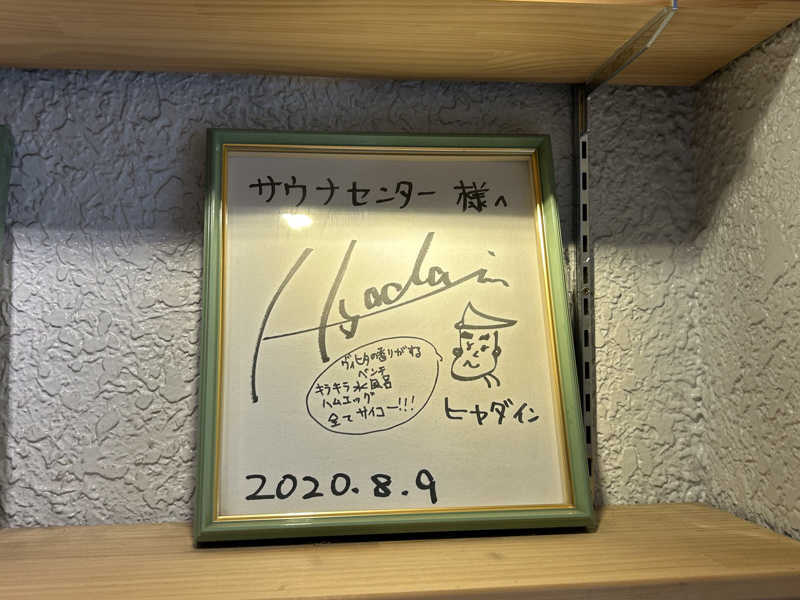 サウナセンター 様へ
Hyadain
ヴィヒタの香りがね
ベンチ
キラキラ水風呂
ハムエッグ
全てサイコー!!!
ヒャダイン
2020.8.9